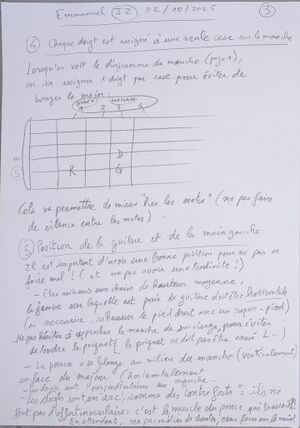 Emmanuel J2 02/10/2025 3
4 Chaque doigt est assigné à une seule case sur le manche
Lorsqu'on voit le diagramme de manche (page 1),
on va assigner 1 doigt par case pour éviter de
bouger la main.
1 2 3 4
m
D
5 R G
Cela va permettre de mieux "lier les notes" (ne pas faire
de silence entre les notes).
5 Position de la guitare et de la main gauche
Il est important d'avoir une bonne position pour ne pas se
faire mal! (et ne pas avoir une tendinite!)
- Etre assis sur une chaise de hauteur moyenne,
la jambe sur laquelle est posée la guitare doit être horizontale
(si nécessaire, rehausser le pied droit avec un repose-pied)
Ne pas hésiter à approcher le manche de son visage, pour éviter
de tendre le poignet (le poignet ne doit pas être cassé L...)
- Le pouce se place au milieu du manche (verticalement)
en face du majeur (horizontalement)
- Les doigts sont "perpendiculaires au manche"
- Les doigts sont en arc, comme des contreforts": ils ne
font pas d'effort musculaire: c'est la muscle du pouce qui travaille
En attendant, ne pas oublier de chanter, sans forcer sur la voix!